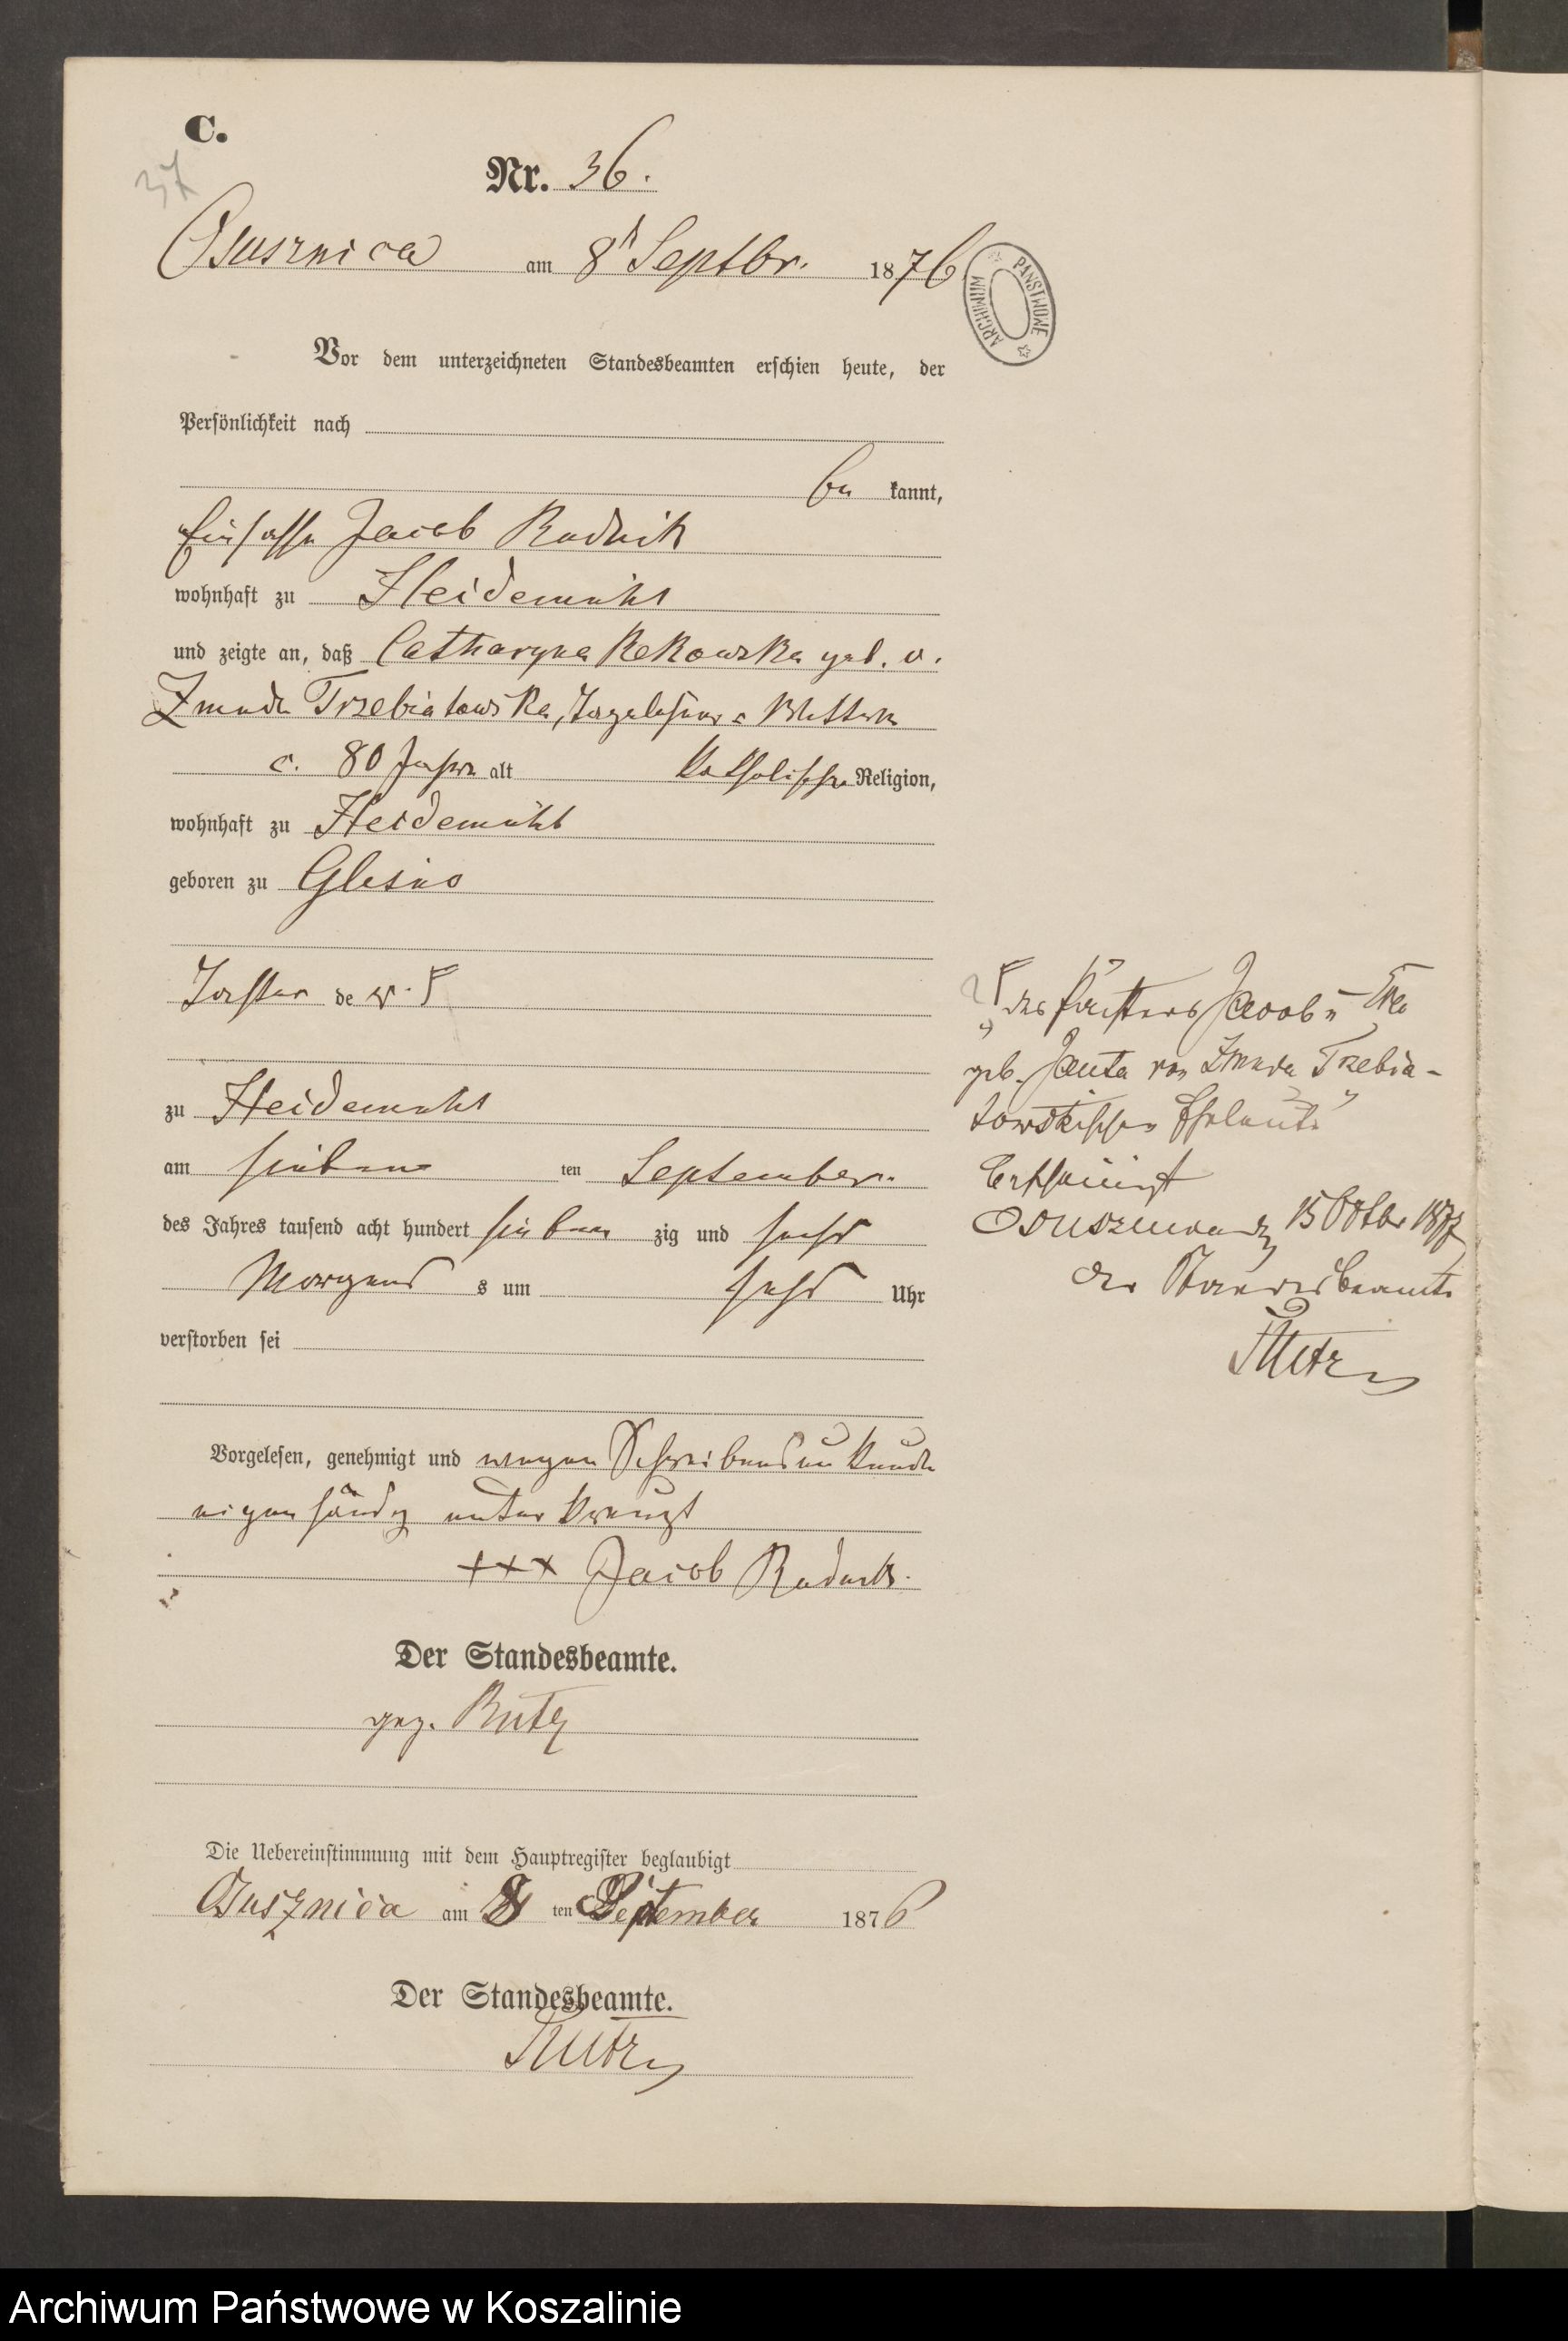 C.
37
Nr. 36.
Osusznica am 8t Septbr. 1876
ARCHIWUM PAŃSTWOWE
Vor dem unterzeichneten Standesbeamten erschien heute, der
Persönlichkeit nach
be kannt,
Einsasse Jacob Rudnik
wohnhaft zu Heidemühl
und zeigte an, daß Catharyna Rekowska geb. v.
Zmuda Trzebiatowska,
c. 80 Jahre alt katholischer Religion,
wohnhaft zu Heidemühl
geboren zu Glisno
Tochter de r. F
zu Heidemühl
am sieben ten September
des Jahres tausend acht hundert sieben zig und sechs
Morgens s um sechs Uhr
verstorben sei
Vorgelesen, genehmigt und wegen Schreibensunkunde
eigenhändig unterkreuzt
+++ Jacob Rudnik.
Der Standesbeamte.
gez.
Die Uebereinstimmung mit dem Hauptregister beglaubigt
Osusznica am 8 ten September 1876
Der Standesbeamte.
F des Försters Jacob u
geb. Janta von Zmuda Trzebia-
towskischen Eheleute
Osusznica 15 Octbr 1877
Der Standesbeamte